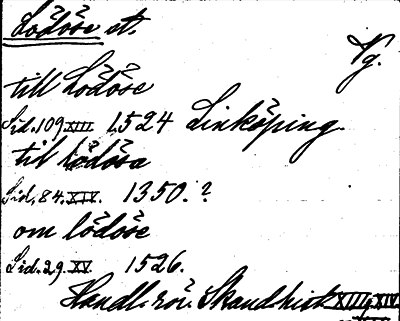 Lödöse st.
Vg.
till Lödöse
Sid. 109 XIII 1524 Linköping
til lödosa
Sid. 84. XIV. 1350.?
om lödöse
Sid. 29. XV. 1526.
Handl. rör. Skand. hist. XIII, XIV